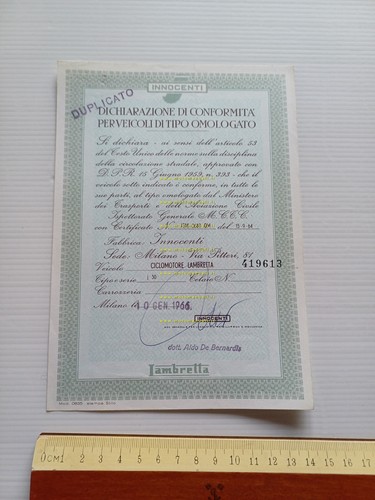 INNOCENTI
DUPLICATO
DICHIARAZIONE DI CONFORMITA'
PER VEICOLI DI TIPO OMOLOGATO
Si dichiara - ai sensi dell'articolo 53
del Testo Unico delle norme sulla disciplina
della circolazione stradale, approvato con
D.P.R. 15 Giugno 1959, n. 393 - che il
veicolo sotto indicato è conforme, in tutte le
sue parti, al tipo omologato dal Ministero
dei Trasporti e dell'Aviazione Civile
Ispettorato Generale M.C.T.C.
con Certificato N. OM del
Fabbrica: Innocenti
Sede: Milano - Via Pitteri, 81
Veicolo CICLOMOTORE LAMBRETTA 419613
Tipo e serie Telaio N.
Carrozzeria
Milano, li 10 GEN. 1966
INNOCENTI
dott. Aldo De Bernardis
Lambretta
0 CM 1 2 3 4 5 6 7 8 9 10 11 12 13 14 15 16 17